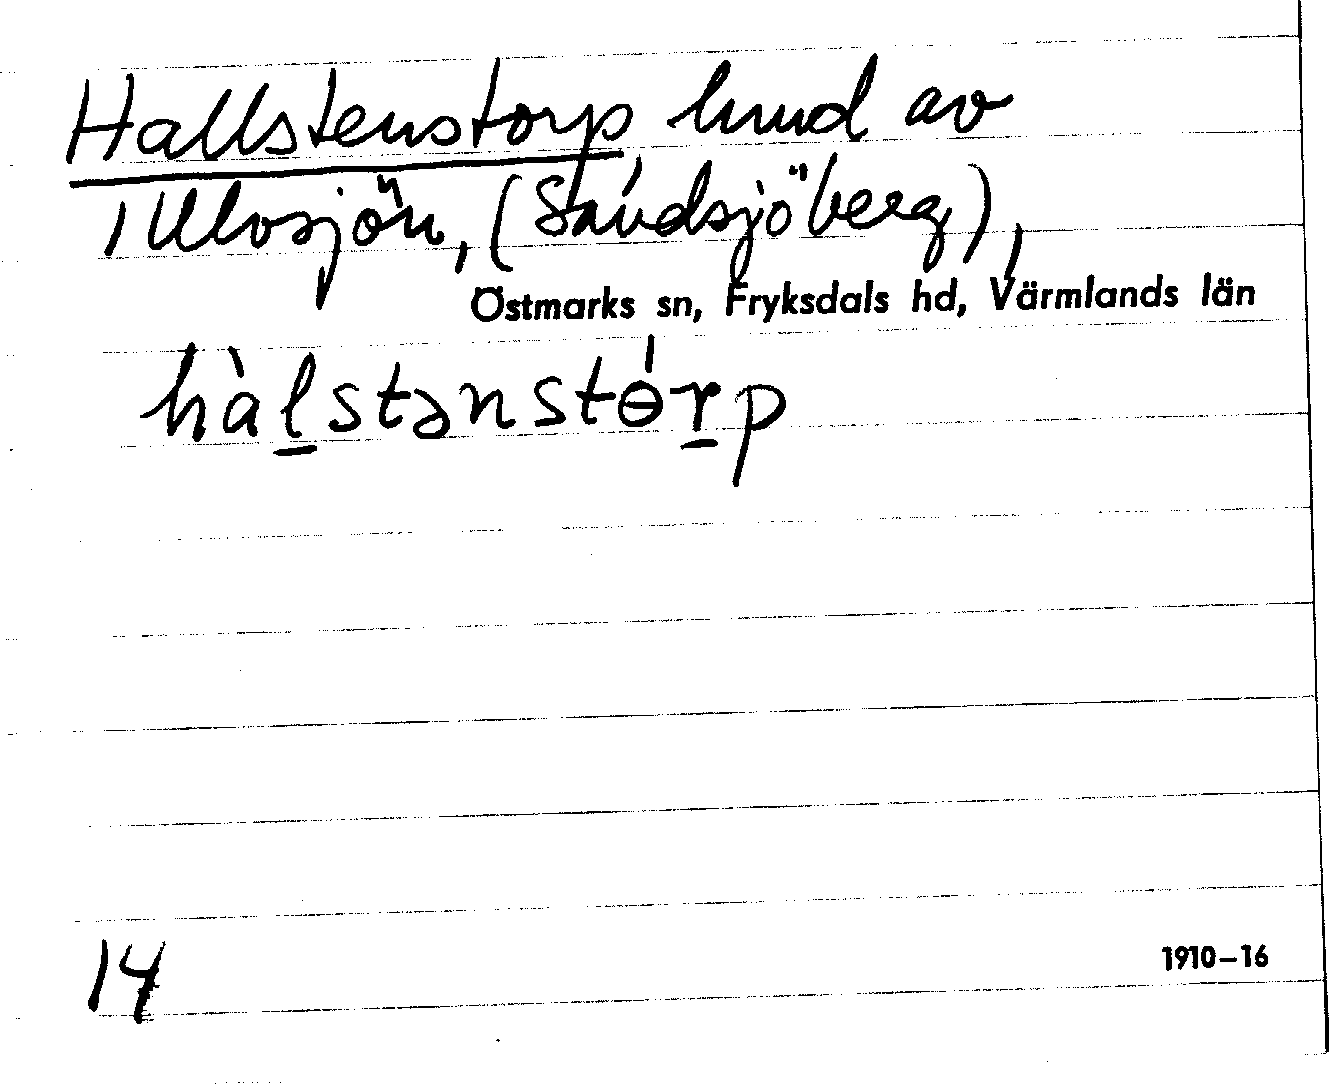 Hallstenstorp, hmd av
Ulvsjön, (Sandsjöberg),
Östmarks sn, Fryksdals hd, Värmlands län
hàl̲stənstɵ́r̲p
14
1910–16